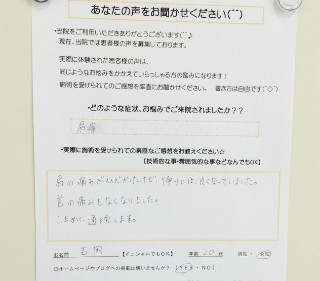 あなたの声をお聞かせください(^^)
・当院をご利用いただきありがとうございます(^^♪
現在、当院では患者様の声を募集しております。
実際に体験された患者様の声は、
同じようなお悩みをかかえて、いらっしゃる方の励みになります！
施術を受けられてのご感想を率直にお聞かせください。 書き方は自由です(^○^)
・どのような症状、お悩みでご来院されましたか？？
肩痛
・実際に施術を受けられての素直なご感想をお教えください☆
【技術的な事・雰囲気的な事などなんでもOK】
肩の痛みがひどかったけど、帰りには、良くなっていました。
首の痛みもなくなりました。
こまめに通院します。
お名前 吉岡 【イニシャルでもOK】 年齢 20 代 男性・女性
◎ホームページやブログへの掲載は構いませんか？ (YES ・ NO)